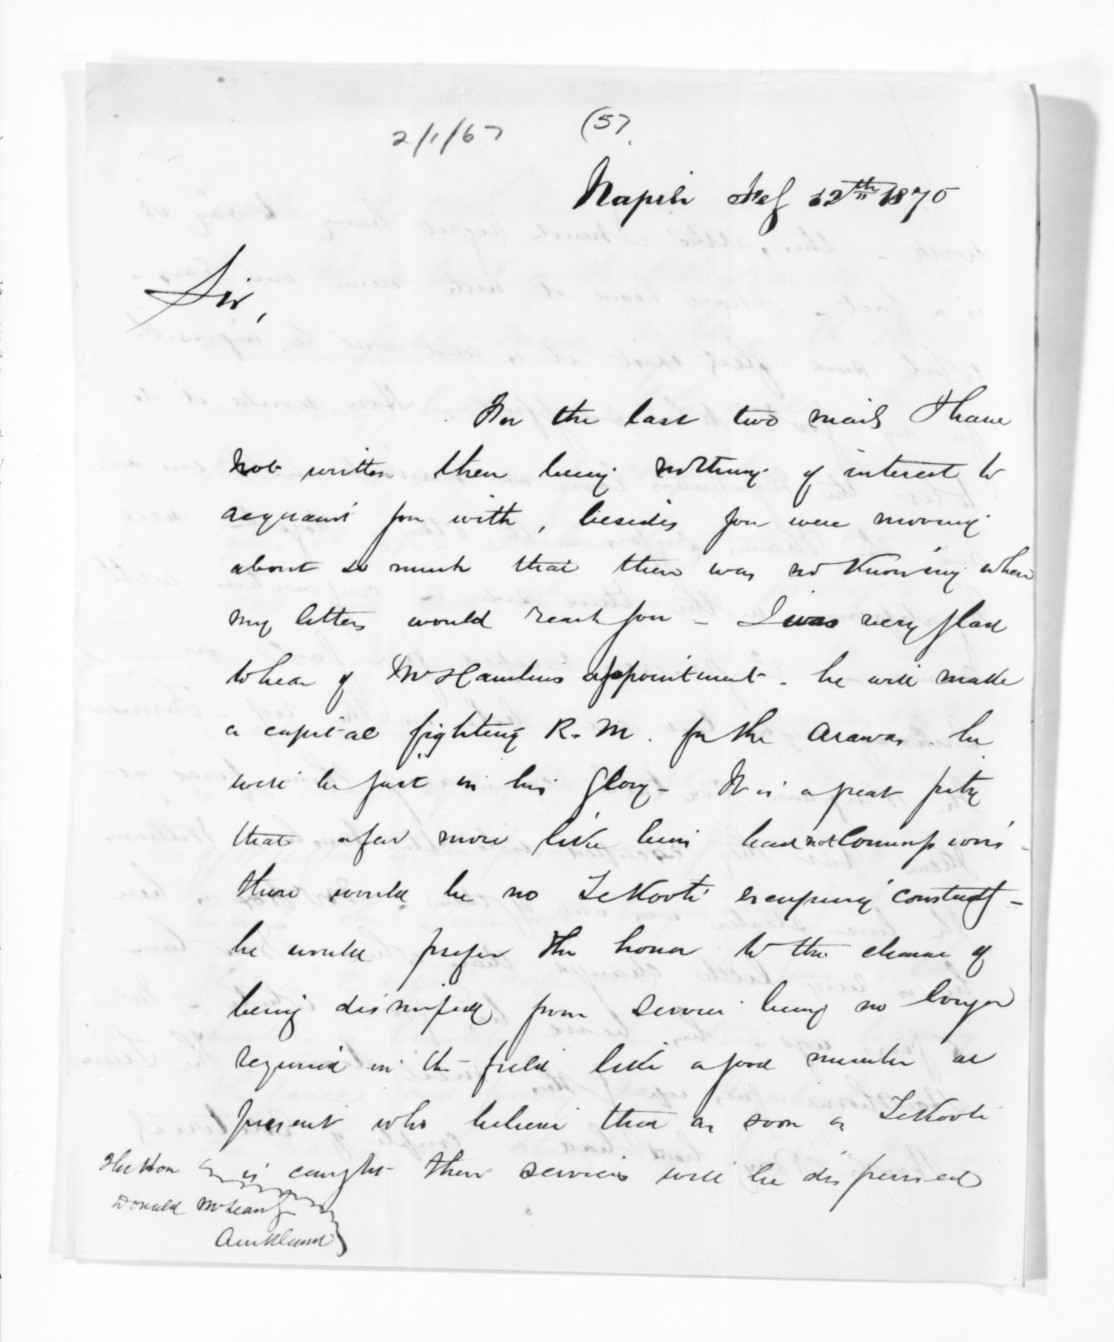 2/1/67 (57.
Napier Feby 12th 1870
Sir,
For the last two mails I have
not written there being nothing of interest to
acquaint you with, besides you were moving
about so much that there was no knowing when
my letters would reach you – I was very glad
to hear of Mr Hamlins appointment. he will make
a capital fighting R.M. for the Arawas he
will be just in his glory – It is a great pity
that a few more like him had not Commands
there would be no TeKooti escaping constantly –
he would prefer the honor to the chance of
being dismissed from service being no longer
required in the field like a good number at
present who believe that as soon as TeKooti
is caught their services will be dispensed
The Hon
Donald McLean
Auckland